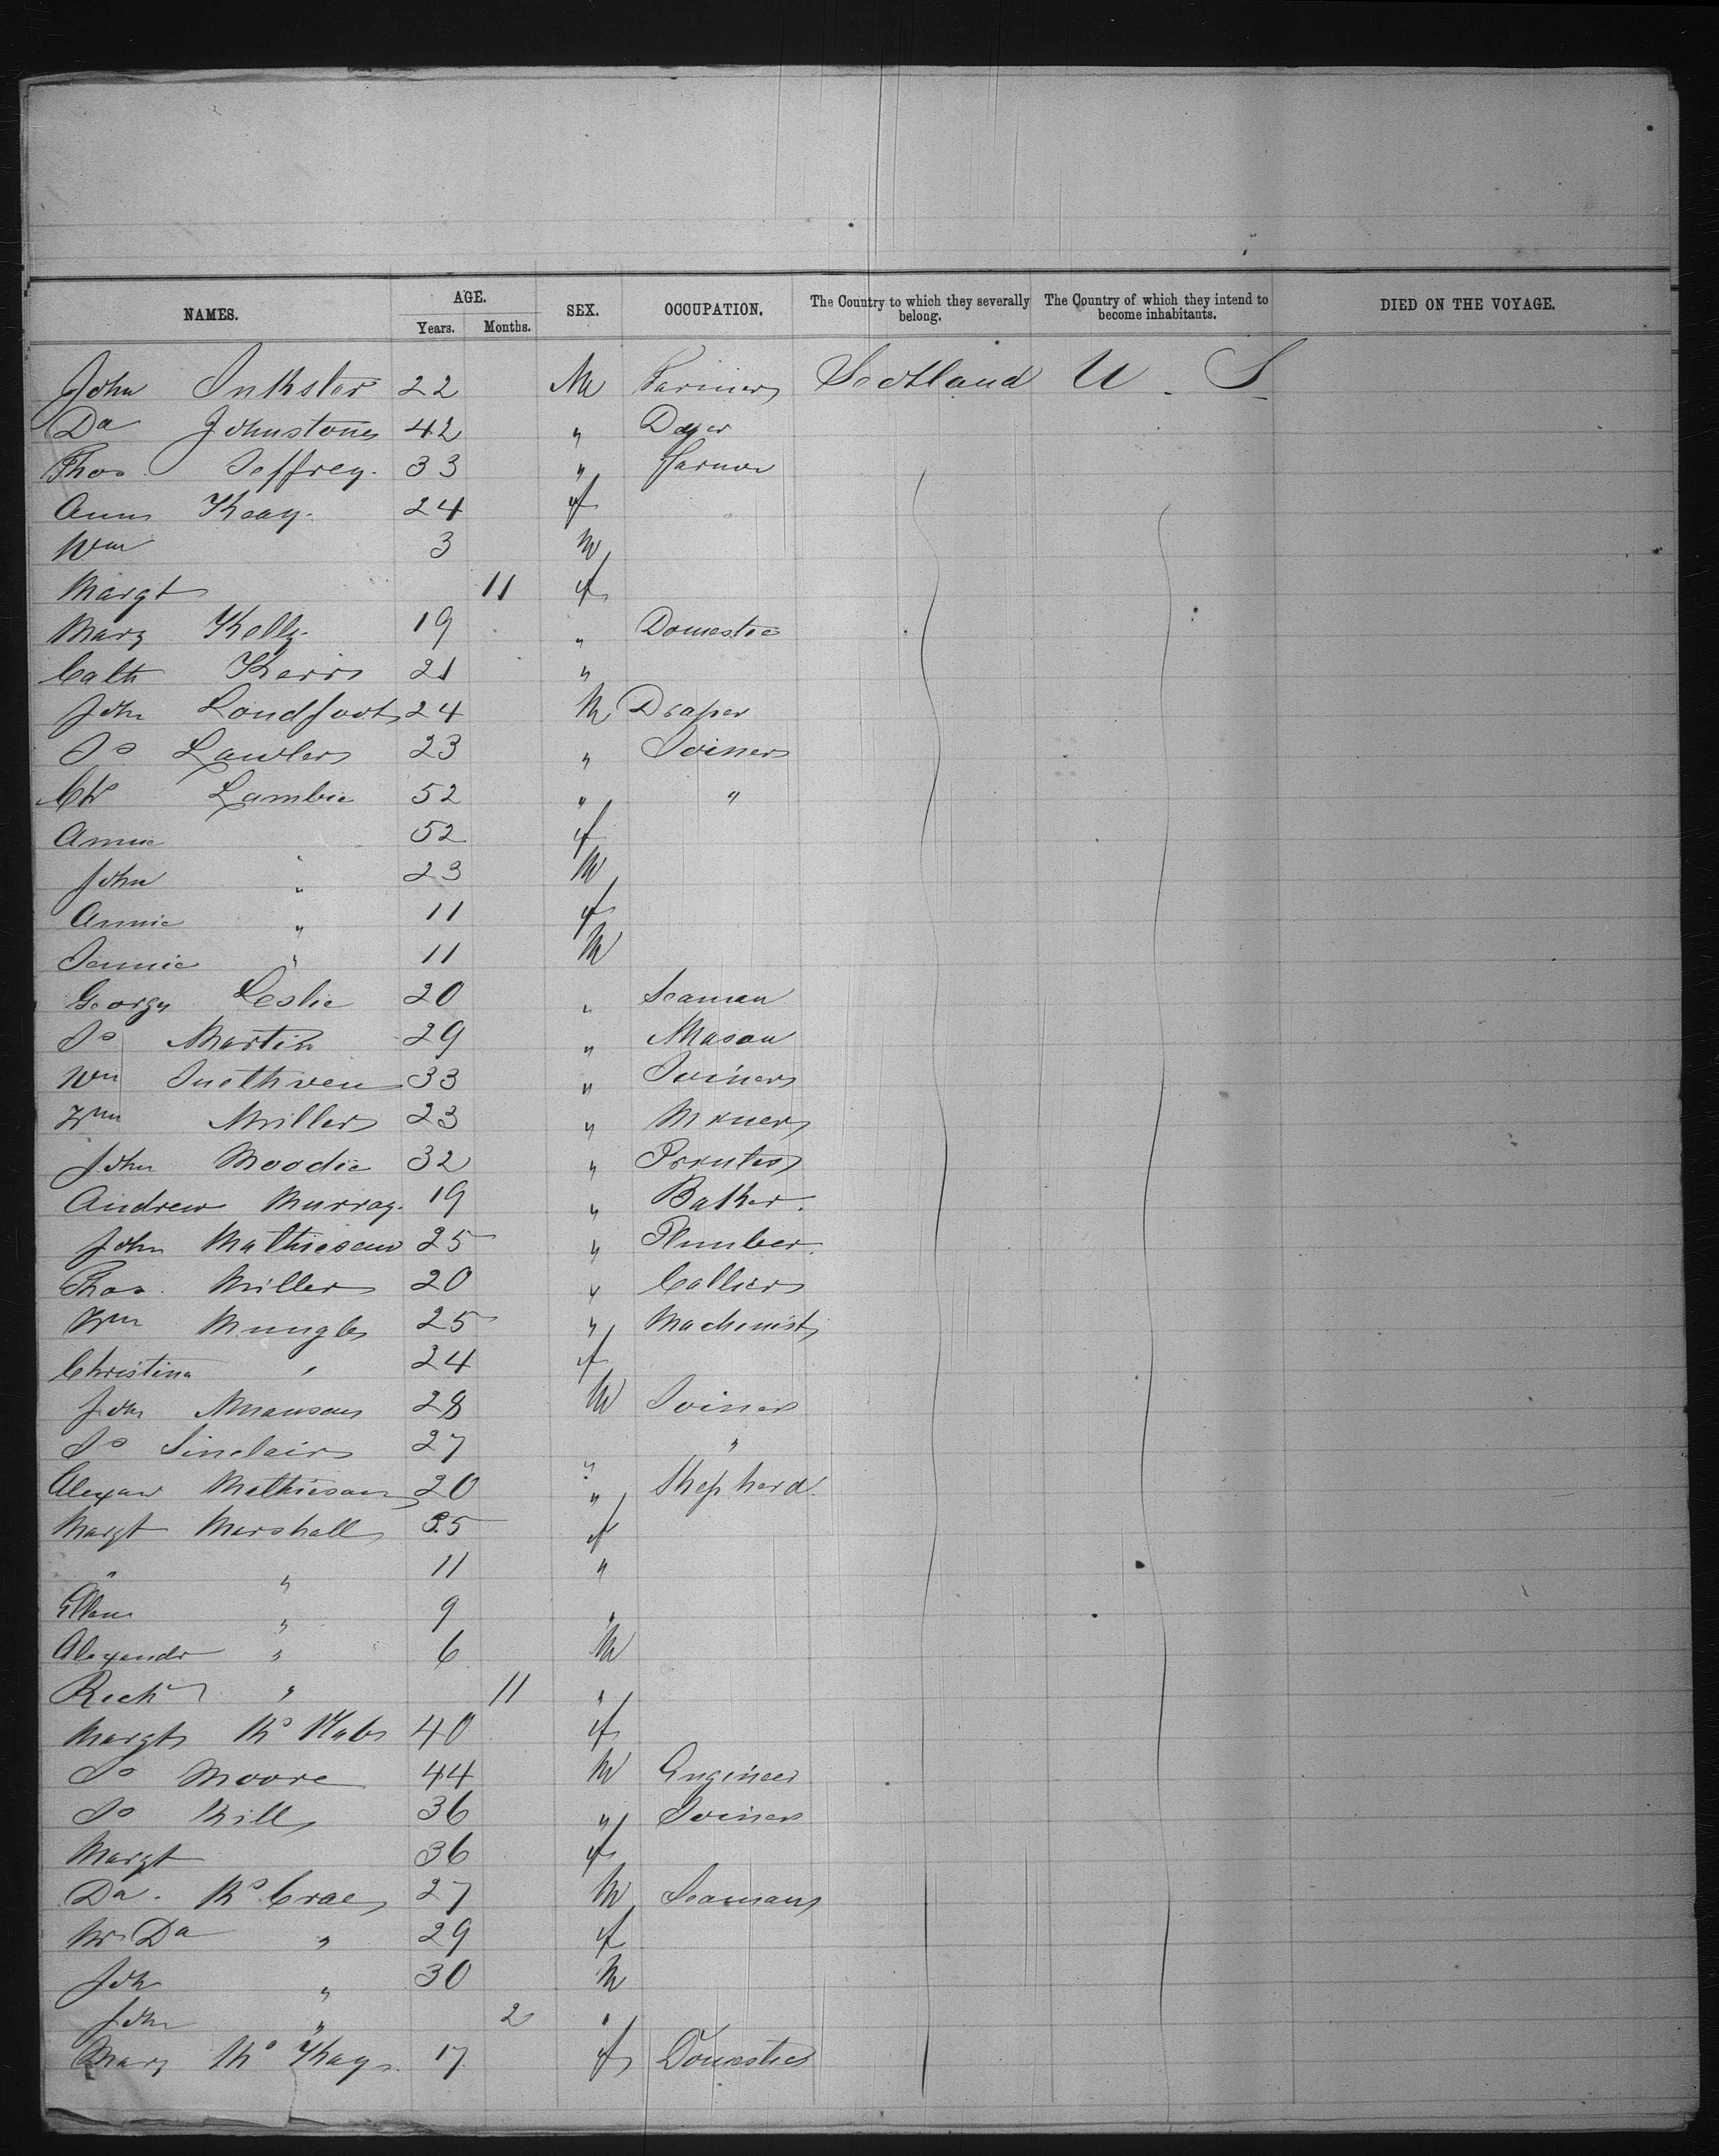 NAMES. AGE. SEX. OCCUPATION. The Country to which they severally belong. The Country of which they intend to become inhabitants. DIED ON THE VOYAGE.
Years. Months.
John Inkster 22 M Farmer Scotland U. S
Da Johnstone 42 " Dyer
Thos Jeffrey. 33 " Farmer
Ann Keay. 24 f
Wm 3 M
Margt 11 f
Mary Kelly. 19 " Domestic
Cath Kerr 21 "
John Loudfoot 24 M Draper
Js Lawler 23 " Joiner
Lambie 52 " "
Annie 52 f
John " 23 M
Annie " 11 f
Jennie " 11 M
George Leslie 20 " Seaman
Js Martin 29 " Mason
Wm 33 " Joiner
Wm Miller 23 " Miner
John Moodie 32 " Printer
Andrew Murray. 19 " Baker.
John Mathieson 25 " Plumber.
Thos. Miller 20 " Collier
Wm Mungle 25 " Machinist
Christina " 24 f
John Manson 28 M Joiner
Js Sinclair 27 " "
Alexan Mathieson 20 " Shepherd.
Margt Marshall 35 f
" " 11 "
Ellen " 9 "
Alexandr " 6 M
Rich " 11 "
Margt Mc Nab 40 f
Js Moore 44 M Engineer
Js Mill 36 " Joiner
Margt 36 f
Da. Mc Crae 27 M Seaman
Mrs Da " 29 f
Joh " 30 M
John " 2 "
Mary Mc Kay 17 f Domestic